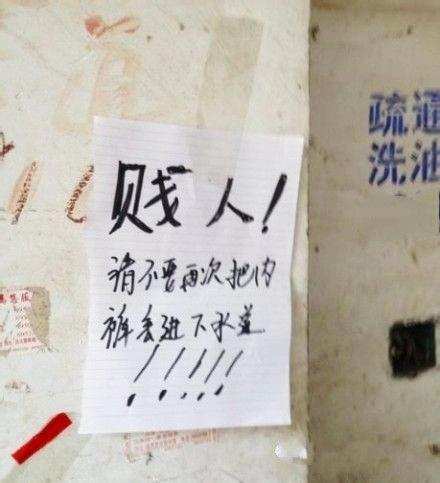 贱人！
请不要再次把内
裤丢进下水道
！！！！！
疏通
洗油